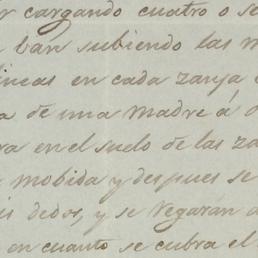 r cargando cuatro o se
n ban subiendo las m
lineas en cada zanja
a de una madre á o
ra en el suelo de las za
mobida y despues se
is dedos, y se regarán a
en cuanto se cubra el